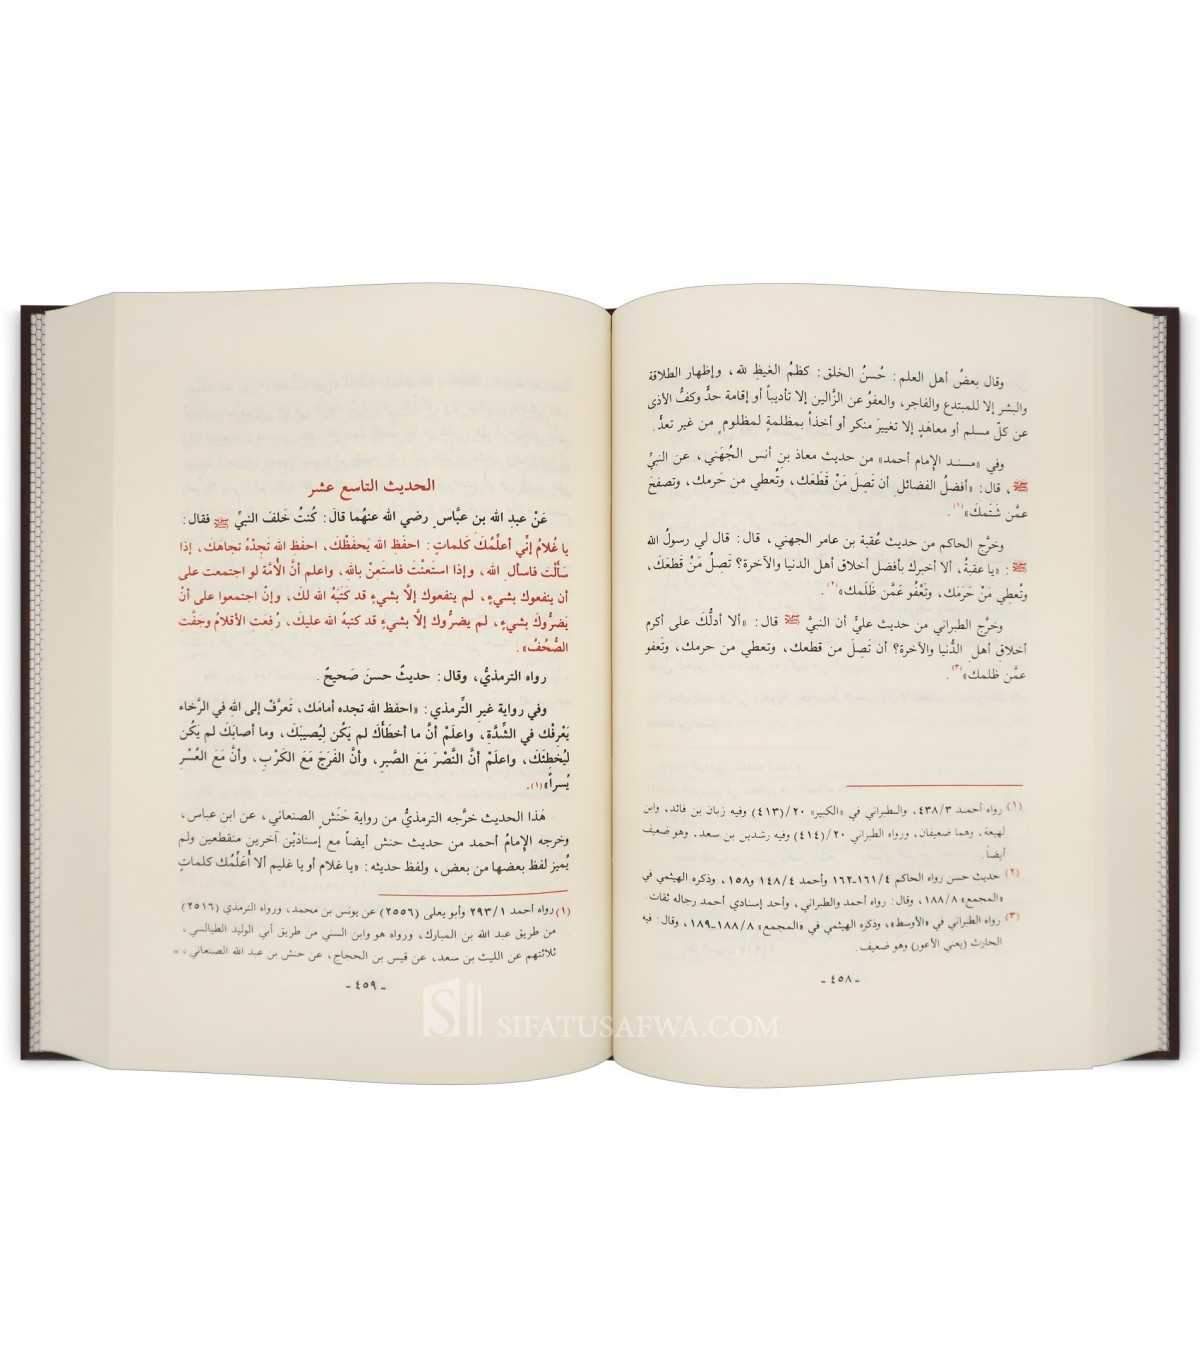 وقال بعضُ أهل العلم: حُسنُ الخلق: كظمُ الغيظِ لله، وإظهار الطلاقة
والبشر إلا للمبتدع والفاجر، والعفوُ عن الزَّالين إلا تأديباً أو إقامة حدٍّ وكفُّ الأذى
عن كلّ مسلم أو معاهَدٍ إلا تغييرَ منكر أو أخذاً بمظلمةٍ لمظلوم من غير تعدٍّ.
وفي «مسند الإمام أحمد» من حديث معاذ بنِ أنس الجُهَني، عن النبيِّ
ﷺ، قال: «أفضلُ الفضائل أن تَصِلَ مَنْ قَطَعَك، وتُعطي من حَرمك، وتصفحَ
عمَّن شَتَمكَ»(١).
وخرَّج الحاكم من حديث عُقبة بن عامر الجهني، قال: قال لي رسولُ الله
ﷺ: «يا عقبةُ، ألا أخبرك بأفضل أخلاق أهل الدنيا والآخرة؟ تَصِلُ مَنْ قطعَكَ،
وتُعطِي مَنْ حَرَمَك، وتَعْفُو عَمَّن ظَلَمك»(٢).
وخرَّج الطبراني من حديث عليٍّ أن النبيَّ ﷺ قال: «ألا أدلُّكَ على أكرم
أخلاقِ أهل الدُّنيا والآخرة؟ أن تَصِلَ من قطعك، وتعطي من حرمك، وتَعفو
عمَّن ظلمك»(٣).
(١) رواه أحمد ٤٣٨/٣، والطبراني في «الكبير» ٢٠/(٤١٣) وفيه زبان بن فائد، وابن
لهيعة، وهما ضعيفان، ورواه الطبراني ٢٠/(٤١٤) وفيه رشدين بن سعد، وهو ضعيف
أيضاً.
(٢) حديث حسن رواه الحاكم ١٦١/٤-١٦٢ وأحمد ١٤٨/٤ و١٥٨، وذكره الهيثمي في
«المجمع» ١٨٨/٨، وقال: رواه أحمد والطبراني، وأحد إسنادي أحمد رجاله ثقات.
(٣) رواه الطبراني في «الأوسط» وذكره الهيثمي في «المجمع» ١٨٨/٨-١٨٩، وقال: فيه
الحارث (يعني الأعور) وهو ضعيف.
- ٤٥٨ -
الحديث التاسع عشر
عَنْ عبدِ الله بنِ عبَّاسٍ رضي الله عنهُما قالَ: كُنتُ خَلفَ النبيِّ ﷺ فقال:
يا غُلامُ إنِّي أعلِّمُكَ كَلماتٍ: احفَظِ الله يَحفَظْك، احفَظِ الله تَجِدْهُ تجاهَك، إذا
سَأَلْتَ فاسأل الله، وإذا استَعنْتَ فاستَعِنْ باللهِ، واعلم أنَّ الأُمَّة لو اجتمعت على
أن ينفعوك بشيءٍ، لم ينفعوك إلَّا بشيءٍ قد كَتَبَهُ الله لكَ، وإنْ اجتمعوا على أنْ
يَضرُّوكَ بشيءٍ، لم يضرُّوك إلَّا بشيءٍ قد كتبهُ الله عليكَ، رُفعَتِ الأقلامُ وجفَّت
الصُّحُفُ».
رواه الترمذيُّ، وقال: حديثٌ حسنٌ صَحيحٌ.
وفي رواية غيرِ التِّرمذي: «احفظ الله تجده أمامَك، تَعرَّفْ إلى اللهِ في الرَّخاء
يَعْرِفْك في الشِّدَّةِ، واعلَمْ أنَّ ما أخطَأَكَ لم يَكُن لِيُصيبَكَ، وما أصابَكَ لم يَكُن
ليُخطِئَكَ، واعلَمْ أنَّ النَّصْرَ مَعَ الصَّبرِ، وأنَّ الفَرَجَ مَعَ الكَرْبِ، وأنَّ مَعَ العُسْرِ
يُسراً»(١).
هَذا الحديث خرَّجه الترمذيُّ من رواية حَنَشٍ الصنعاني، عن ابن عباس،
وخرجه الإمامُ أحمد من حديث حنش أيضاً مع إسنادَيْن آخرين منقطعين ولم
يُميز لفظ بعضها من بعض، ولفظ حديثه: «يا غلام أو يا غليم ألا أُعَلِّمُك كلماتٍ
(١) رواه أحمد ٢٩٣/١ وأبو يعلى (٢٥٥٦) عن يونس بن محمد، ورواه الترمذي (٢٥١٦)
من طريق عبد الله بن المبارك، ورواه هو وابن السني من طريق أبي الوليد الطيالسي،
ثلاثتهم عن الليث بن سعد، عن قيس بن الحجاج، عن حنش بن عبد الله الصنعاني، =
- ٤٥٩ -
SIFATUSAFWA.COM